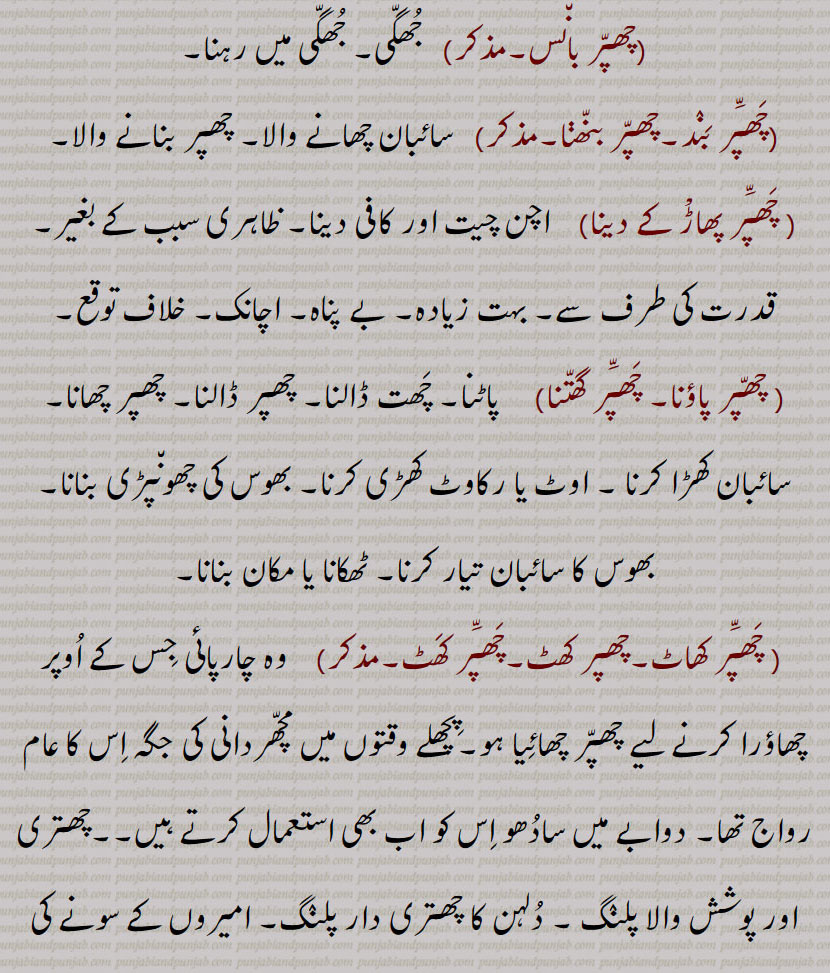 (چھپّر بانّس۔مذکر) جُھگّی۔ جُھگّی میں رہنا۔
(چَھپِّر بَنْد۔چھپّر بنّھنا۔مذکر) سائبان چھانے والا۔ چھپر بنانے والا۔
(چَھپِّر پھاڑْ کے دینا) اچن چیت اور کافی دینا۔ ظاہری سبب کے بغیر۔
قدرت کی طرف سے۔ بہت زیادہ۔ بے پناہ۔ اچانک۔ خلاف توقع۔
(چھپّر پاؤنا۔ چَھپِّر گھتّنا) پاٹنا۔ چَھت ڈالنا۔ چھپر ڈالنا۔ چھپر چھانا۔
سائبان کھڑا کرنا ۔ اوٹ یا رکاوٹ کھڑی کرنا۔ بھوس کی جھونپڑی بنانا۔
بھوس کا سائبان تیار کرنا۔ ٹھکانا یا مکان بنانا۔
(چَھپِّر کھاٹ۔چھپر کھٹ۔چَھپِّر کَھٹ۔مذکر) وہ چارپائی جِس کے اُوپر
چھاؤرا کرنے لیے چھپّر چھائِیا ہو۔پِچھلے وقتوں میں مچّھردانی کی جگہ اِس کا عام
رواج تھا۔ دوابے میں سادُھو اِس کو اب بھی استعمال کرتے ہیں۔۔چھتری
اور پوشش والا پلنگ ۔ دُلہن کا چھتری دار پلنگ۔ امیروں کے سونے کی